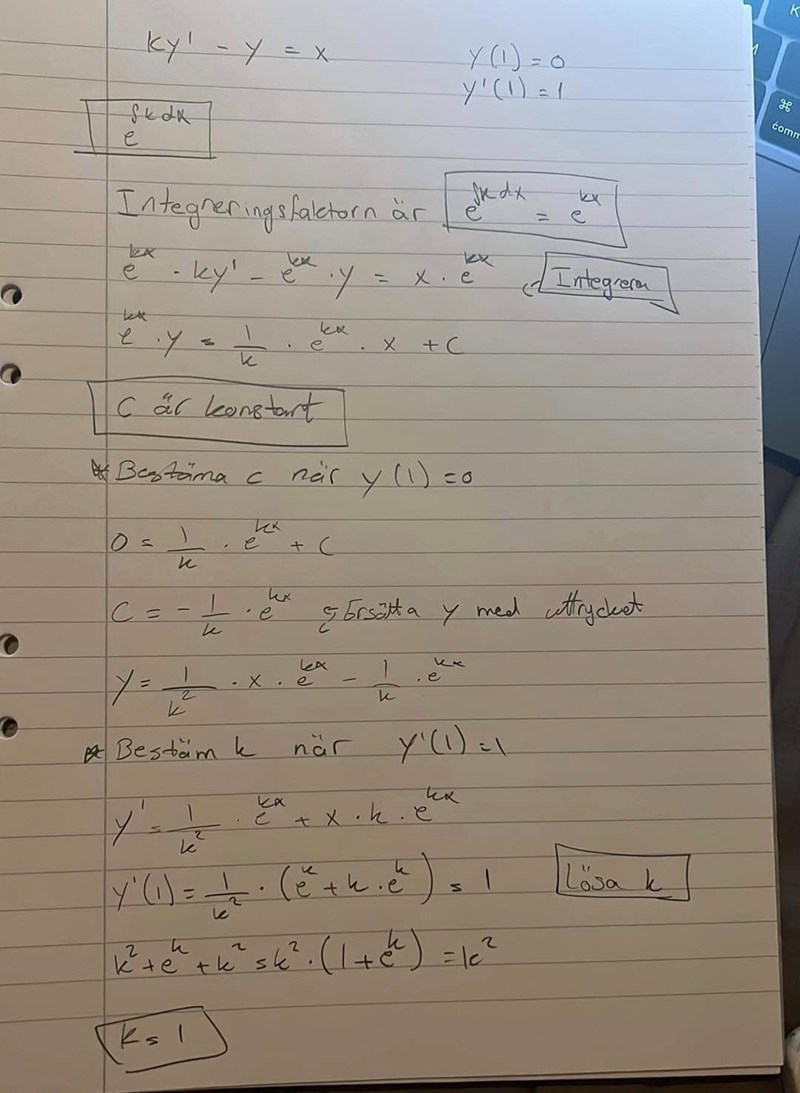 ky' - y = x
y(1) = 0
y'(1) = 1
e^∫k dx
Integreringsfaktorn är e^∫k dx = e^kx
e^kx · ky' - e^kx · y = x · e^kx Integrera
e^kx · y = 1/k · e^kx · x + C
C är konstant
* Bestäma C när y(1) = 0
0 = 1/k · e^kx + C
C = - 1/k · e^kx Ersätta y med uttrycket
y = 1/k^2 · x · e^kx - 1/k · e^kx
* Bestäm k när y'(1) = 1
y' = 1/k^2 · e^kx + x · k · e^kx
y'(1) = 1/k^2 · (e^k + k · e^k) = 1 Lösa k
k^2 + e^k + k^2 = k^2 · (1 + e^k) = k^2
k = 1
K
⌘
comm